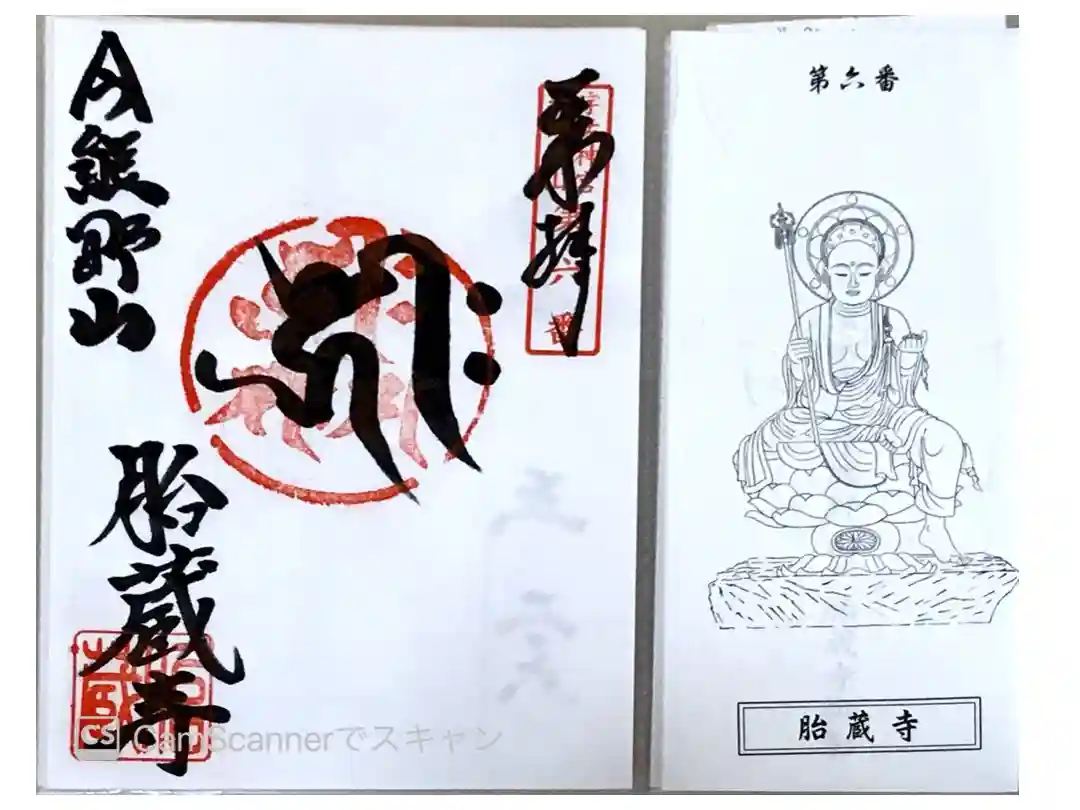 奉拝
宇佐神宮
六番
今熊野山
胎蔵寺
CS CamScannerでスキャン
第六番
胎蔵寺